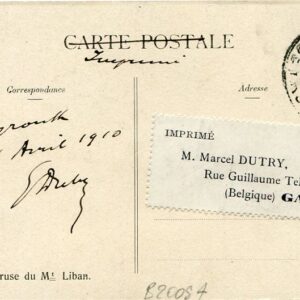 CARTE POSTALE
Imprimé
Correspondance
Adresse
Avril 1910
IMPRIMÉ
M. Marcel DUTRY,
Rue Guillaume Tel
(Belgique) GA
ruse du Mt Liban.